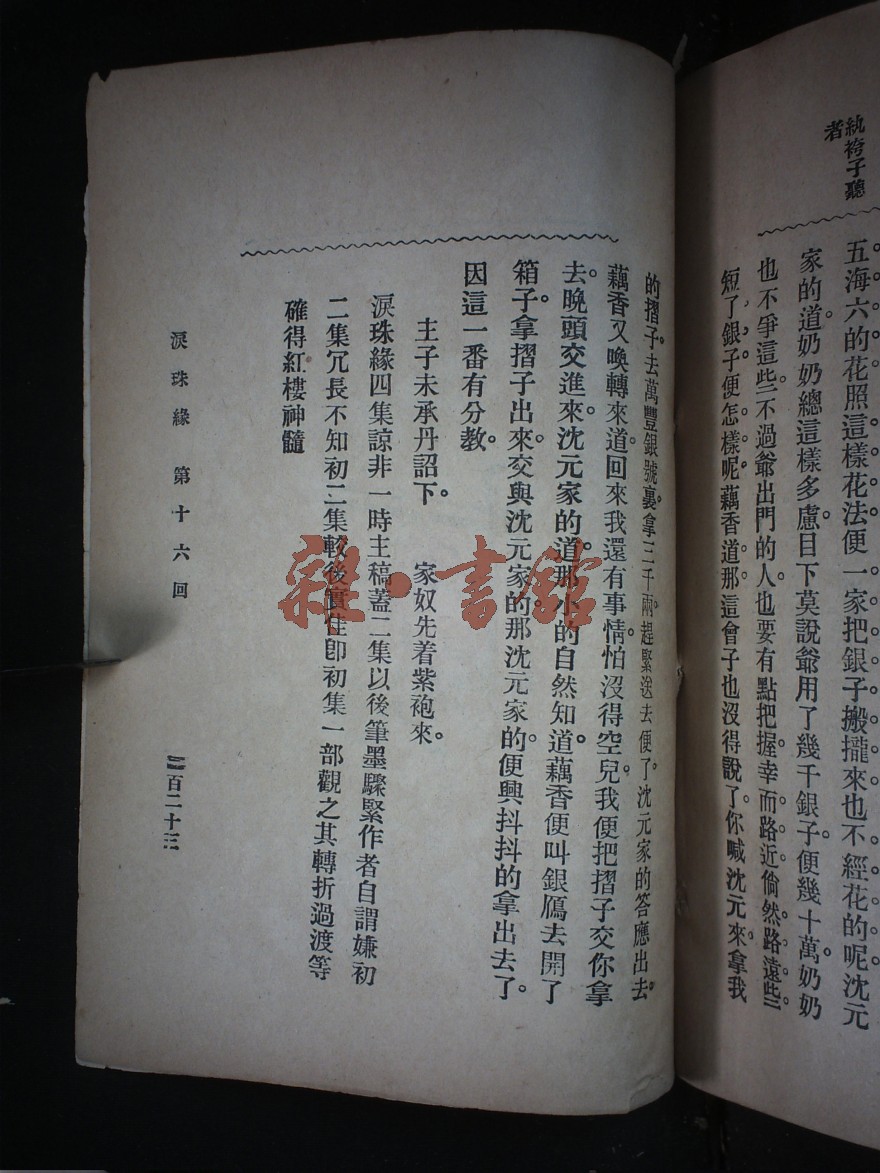 紈袴子聽
者
五海六的花照這樣花法便一家把銀子搬攏來也不經花的呢沈元
家的道奶奶總這樣多慮目下莫說爺用了幾千銀子便幾十萬奶奶
也不爭這些不過爺出門的人也要有點把握幸而路近倘然路遠些
短了銀子便怎樣呢藕香道那這會子也沒得說了你喊沈元來拿我
的摺子去萬豐銀號裏拿三千兩趕緊送去便了沈元家的答應出去。
藕香又喚轉來道回來我還有事情怕沒得空兒我便把摺子交你拿
去。晚頭交進來沈元家的道那小的自然知道藕香便叫銀鴈去開了
箱子。拿摺子出來。交與沈元家的那沈元家的便興抖抖的拿出去了。
因這一番有分教。
主子未承丹詔下。 家奴先着紫袍來。
淚珠緣四集諒非一時主稿蓋二集以後筆墨驟緊作者自謂嫌初
二集冗長不知初二集較後實佳卽初集一部觀之其轉折過渡等
確得紅樓神髓
淚珠緣 第十六回 二百二十三
雜·書館